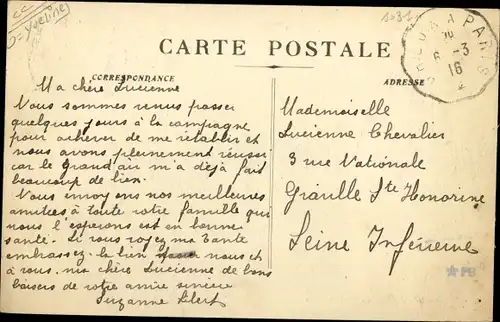 Yveline
1031
CARTE POSTALE
CORRESPONDANCE
ADRESSE
A PARIS
6 -3
16
Ma chère Lucienne
Nous sommes venus passer
quelques jours à la campagne
pour achever de me rétablir et
nous avons pleinement réussi
car le Grand air m'a déjà fait
beaucoup de bien.
Vous envoyons nos meilleures
amitiés à toute votre famille qui
nous l'espérons est en bonne
santé. Si vous voyez ma tante
embrassez la bien nous et
à vous, ma chère Lucienne de bons
baisers de votre amie sincère
Suzanne
Mademoiselle
Lucienne Chevalier
3 rue Nationale
Graville Ste Honorine
Seine Inférieure
PB